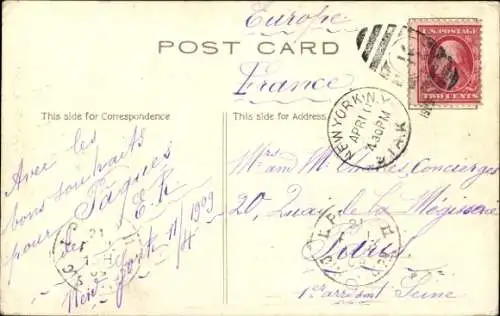 Europe
POST CARD
U.S. POSTAGE
TWO CENTS
France
NEW YORK, N.Y.
APR 11
4:30 PM
This side for Correspondence
This side for Address
Avec les
bons souhaits
pour Pâques
de E.R.
New York 11/4 1909
Mrs and Mr Charles Concierges
20, Quai de la Mégisserie
Paris
1er arrdmt Seine